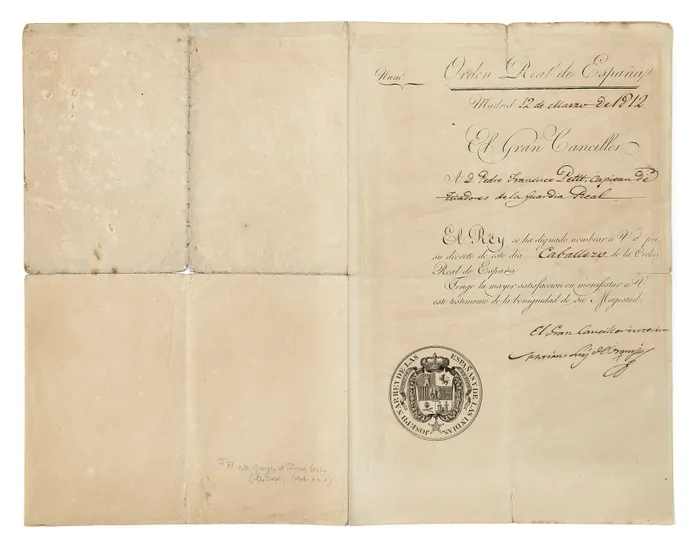 Num.º
Orden Real de España
Madrid 12 de Marzo de 1812
El Gran Canciller
A D. Pedro Francisco Petit, Capitan de
Tiradores de la Guardia Real
El Rey se ha dignado nombrar á V. d por
su decreto de este dia Caballero de la Orden
Real de España
Tengo la mayor satisfaccion en manifestar á V.
este testimonio de la benignidad de Su Magestad.
El Gran Canciller
Mariano Luis de Urquijo
JOSEPH NAP. REY DE LAS ESPAÑAS Y DE LAS INDIAS